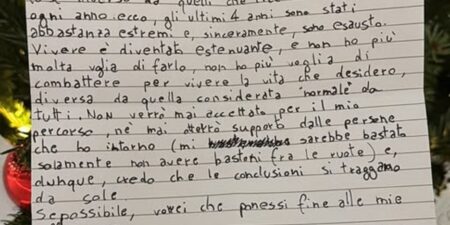 ogni anno. ecco, gli ultimi 4 anni sono stati
abbastanza estremi e, sinceramente, sono esausto.
Vivere è diventato estenuante, e non ho più
molta voglia di farlo, non ho più voglia di
combattere per vivere la vita che desidero,
diversa da quella considerata "normale" da
tutti. Non verrò mai accettato per il mio
percorso, ne mai otterrò supporto dalle persone
che ho intorno (mi sarebbe bastato
solamente non avere bastoni fra le ruote) e,
dunque, credo che le conclusioni si traggano
da sole.
Se possibile, vorrei che ponessi fine alle mie